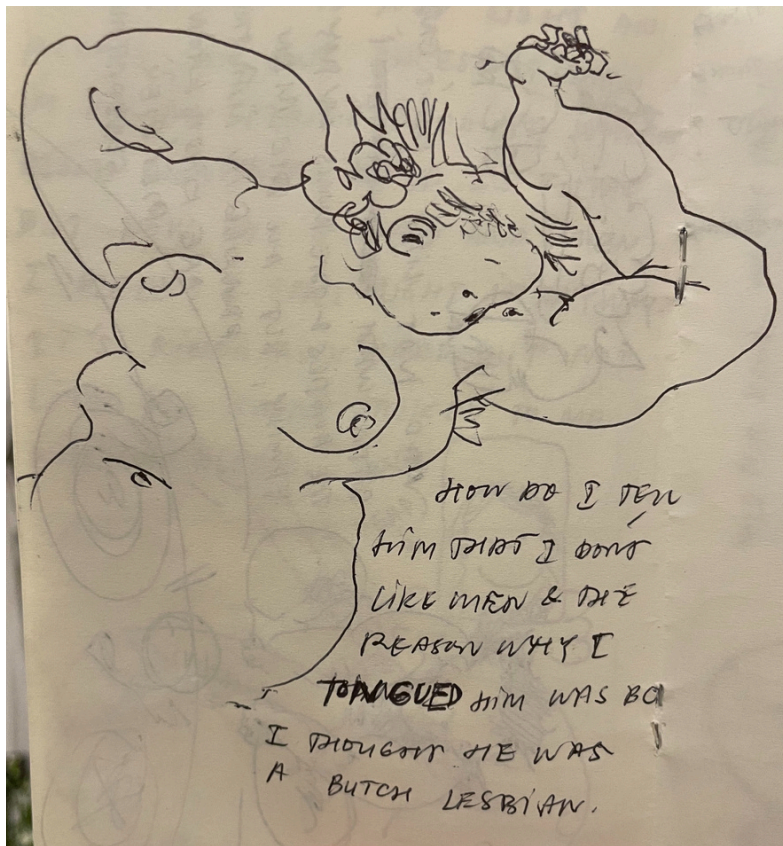 HOW DO I TELL
HIM THAT I DONT
LIKE MEN & THE
REASON WHY I
TONGUED HIM WAS BC
I THOUGHT HE WAS
A BUTCH LESBIAN.